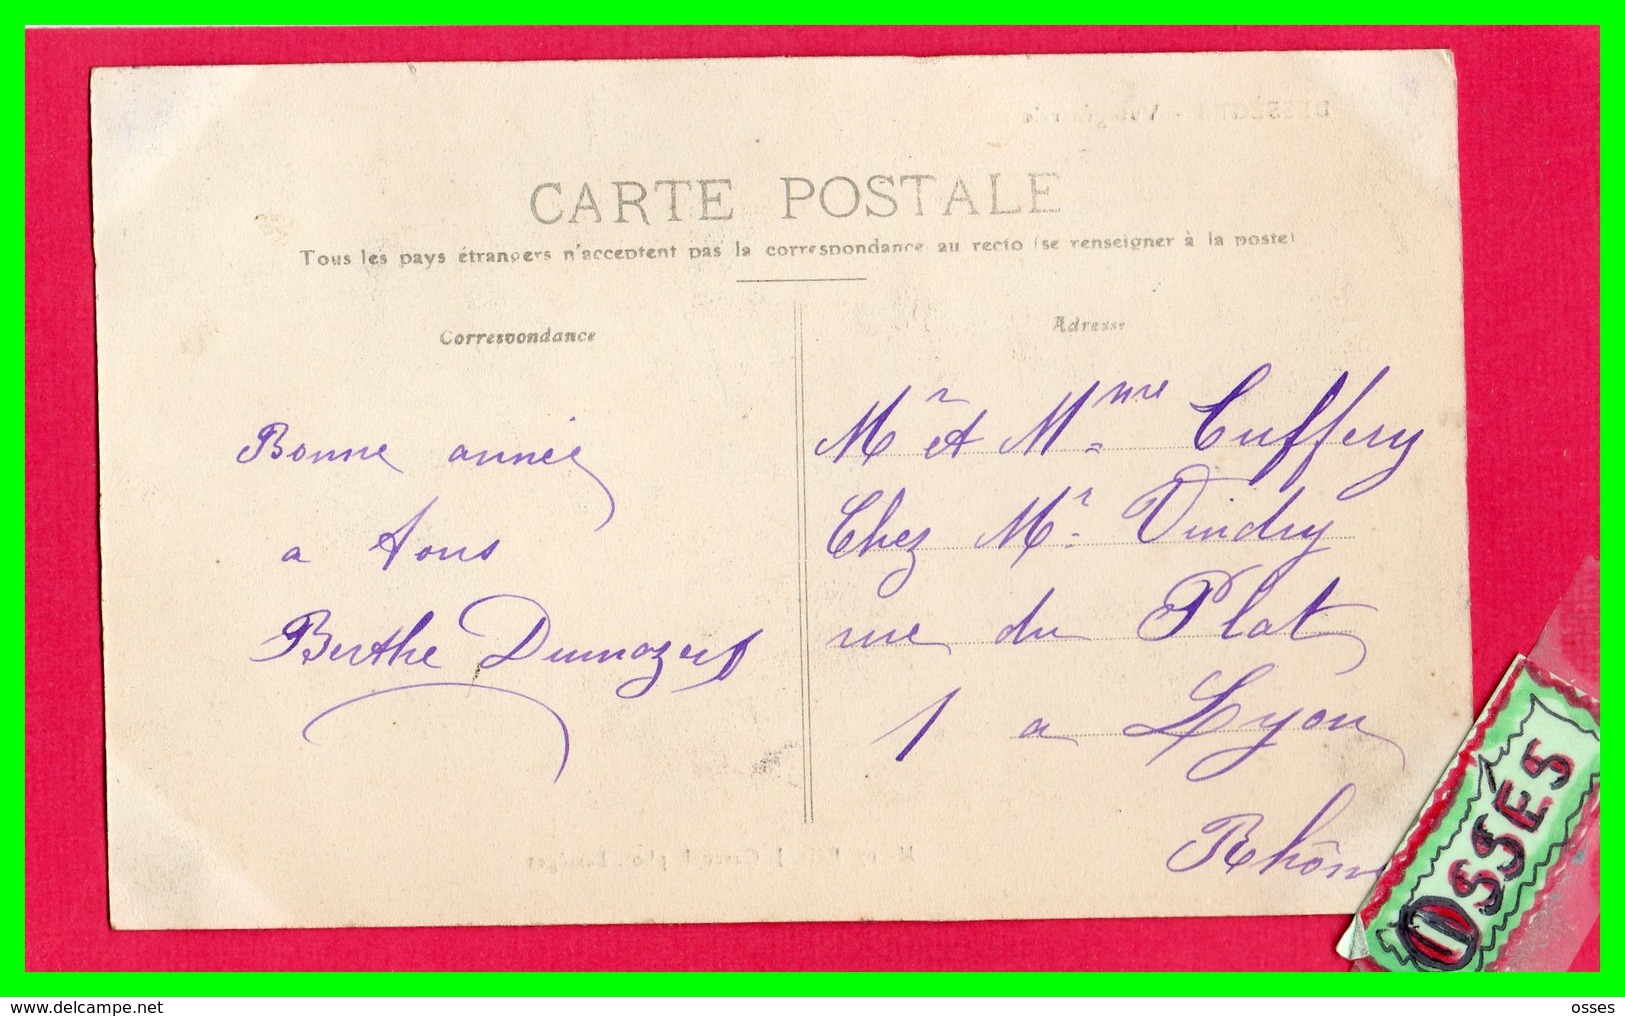 CARTE POSTALE
Tous les pays étrangers n'acceptent pas la correspondance au recto (se renseigner à la poste)
Correspondance
Bonne année
a tous
Berthe Dumazert
Adresse
Mr et Mme Cuffery
Chez Mr Vindry
rue du Plat
1 a Lyon
Rhône
OSSÉS
delcampe.net
osses